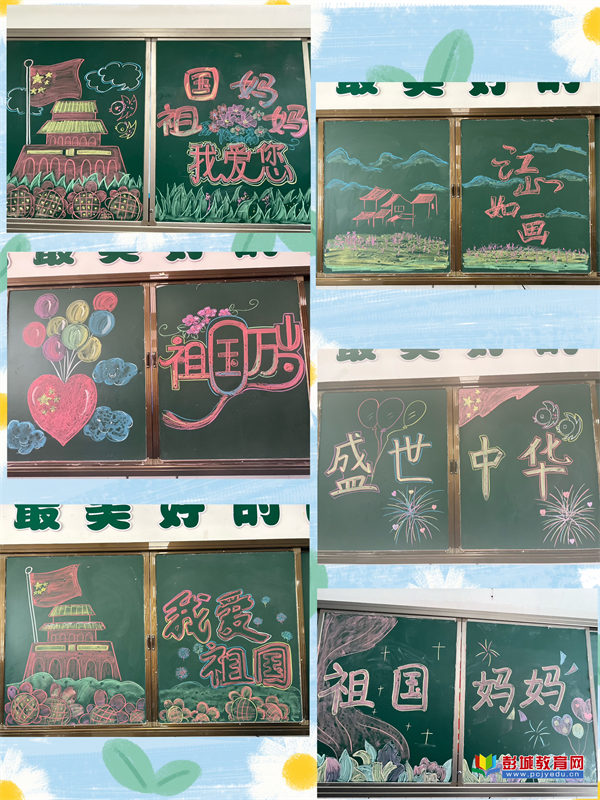 国 妈
祖 妈
我爱您
最美好的
江山
如画
最美好的
祖国万岁
盛世中华
最美好的
我爱
祖国
祖国 妈妈
彭城教育网
www.pcjyedu.cn